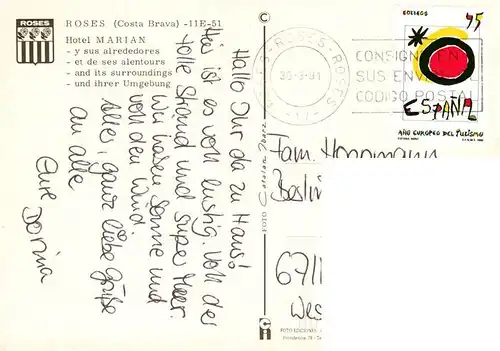 ROSES
ROSES (Costa Brava) -11E-51
Hotel MARIAN
- y sus alrededores
- et de ses alentours
- and its surroundings
- und ihrer Umgebung
Hallo Ihr da zu Haus!
Hei ist es von lustig. Von der
tolle Strand und super Meer.
Wir haben Sonne und
von den Wind.
Alles, ganz liebe Grüße
an alle
Eure Dorina
C
FOTO
ROSES
30-3-91
-11-
CONSIGNE EN
SUS ENVIOS
CODIGO POSTAL
CORREOS
45
ESPAÑA
AÑO EUROPEO DEL TURISMO
Fam. Hoppmann
Berlin
671
Wes
FOTO EDICIONES